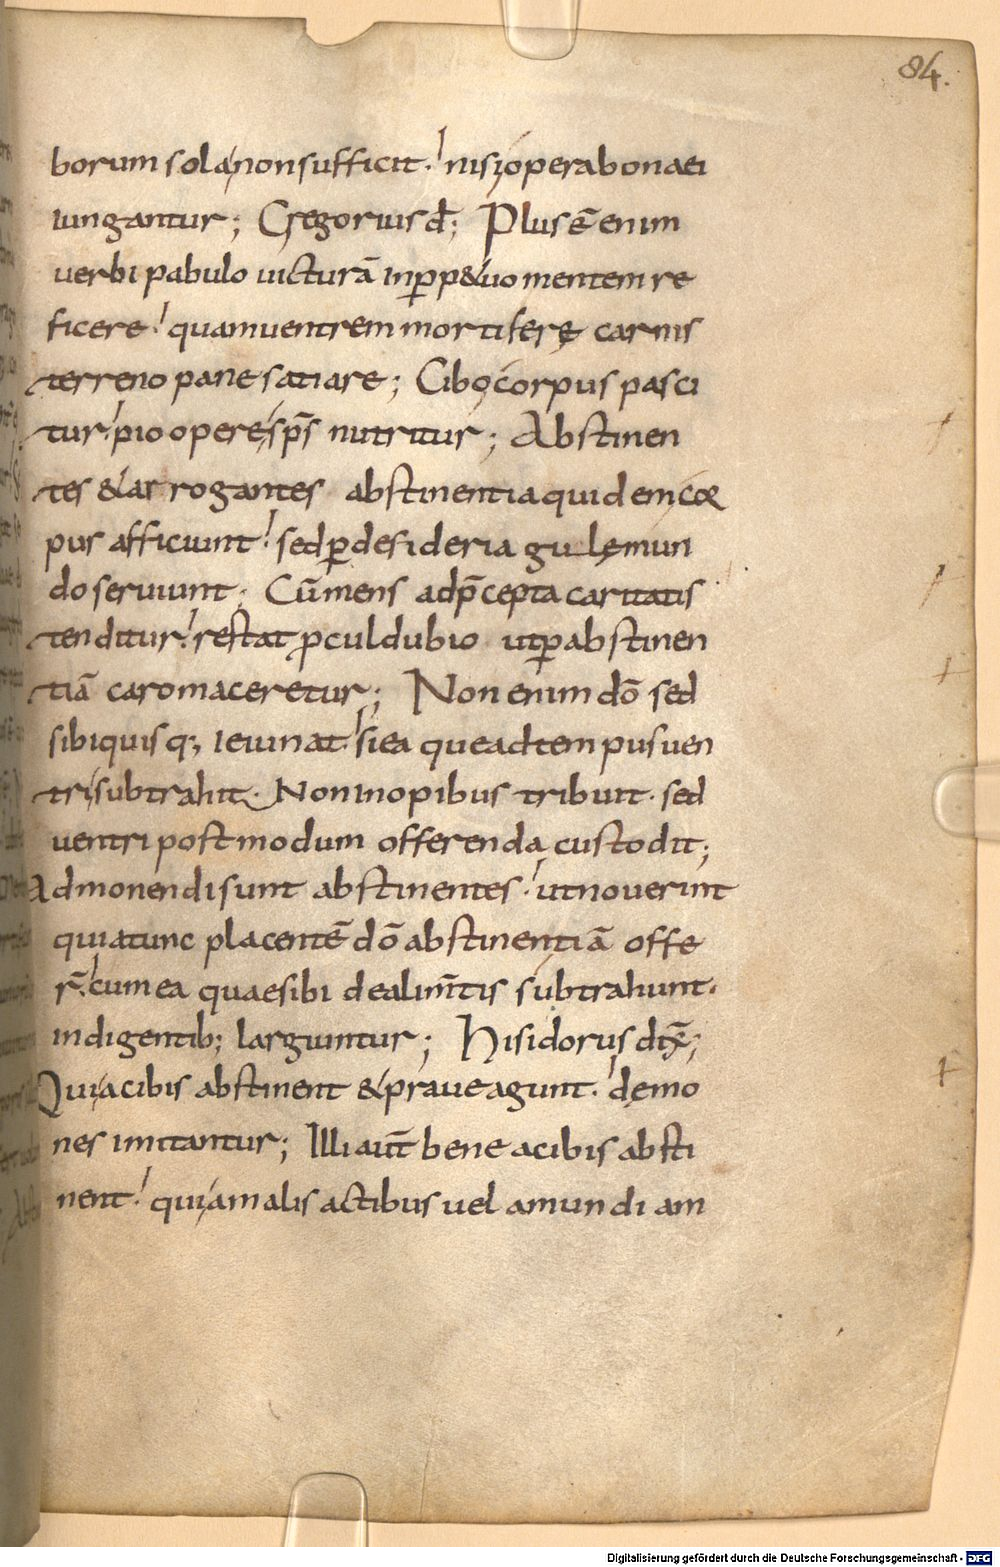 84.
borum sola non sufficit. nisi opera bona ei
iungantur; Gregorius d̄; Plus ē enim
verbi pabulo victurā in ꝑp&uo mentem re
ficere. quam ventrem morti ferę carnis
terreno pane satiare; Cibo corpus pasci
tur. pio opere sp̄s nutritur; Abstinen
tes & arrogantes abstinentia quidem cor
pus afficiunt. sed ꝑ desideria gulę mun
do serviunt; Cū mens ad p̄cepta caritatis
tenditur. restat ꝓculdubio ut ꝑ abstinen
tiā caro maceretur; Non enim dō sed
sibi quisq; ieiunat. si ea que ad tempus ven
tri subtrahit. Non inopibus tribuit. sed
ventri postmodum offerenda custodit;
Admonendi sunt abstinentes. ut noverint
quia tunc placentē dō abstinentiā offe
r̄. cum ea quae sibi de alim̄tis subtrahunt.
indigentib; larguntur; Hisidorus dix̄;
Qui a cibis abstinent & prave agunt. demo
nes imitantur; Illi aut̄ bene a cibis absti
nent. qui a malis actibus vel a mundi am
Digitalisierung gefördert durch die Deutsche Forschungsgemeinschaft - DFG